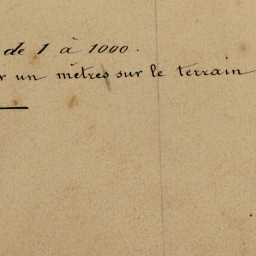 de 1 à 1000.
un mètres sur le terrain